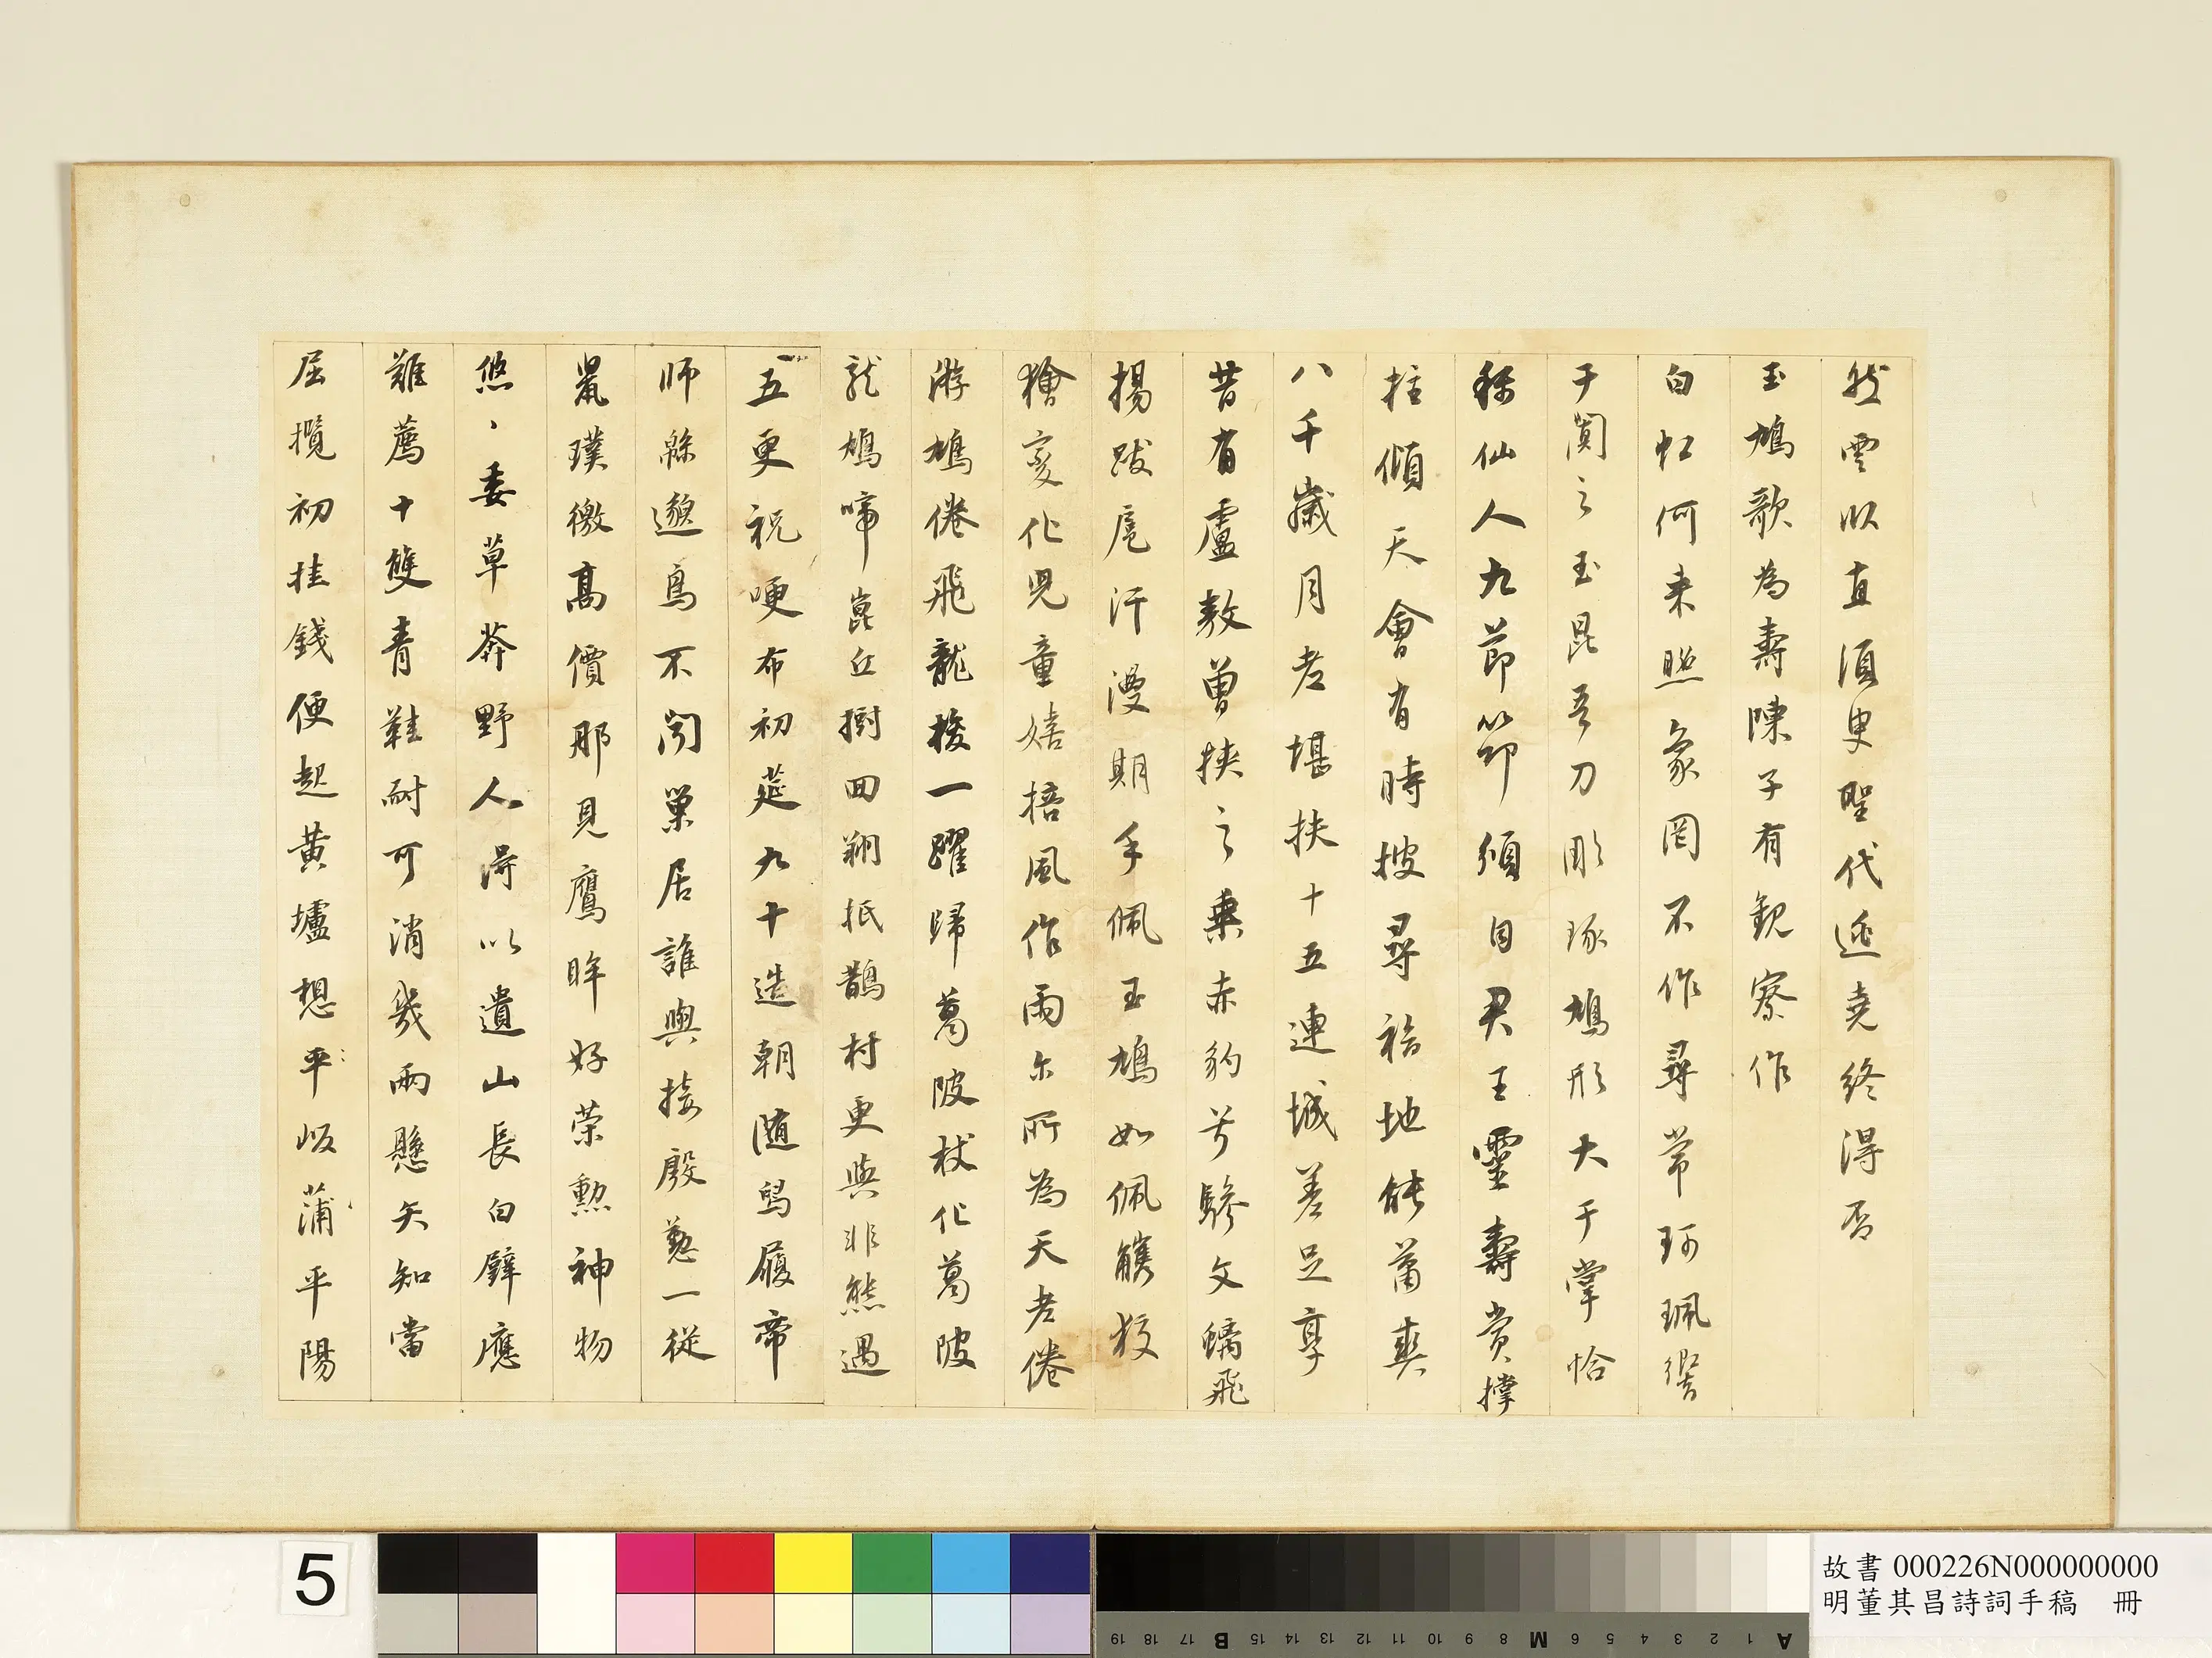 然雲臥直須史聖代逃堯終得否
玉鳩歌為壽陳子有觀察作
白虹何來照象罔不作尋常珂珮響
于闐之玉昆吾刀彫琢鳩形大于掌恰
稱仙人九節節須自君王靈壽賞撐
拄傾天會有時披尋福地能蕭爽
八千歲月老堪扶十五連城差足享
昔有盧敖曾挾之乘赤豹兮驂文螭飛
揚跋扈汗漫期手佩玉鳩如佩觿狡
獪變化兒童嬉搭風作雨尔所為天老倦
游鳩倦飛龍梭一躍歸葛陂杖化葛陂
龍鳩啼崑丘樹回翔抵鵲村更與非熊遇
五更祝哽布初筵九十造朝隨舄履帝
師緜邈鳥不聞巢居誰與接殷懃一從
鼠璞徼高價那見鷹眸好榮勲神物
悠、委草莽野人得以遺山長白璧應
難薦十雙青鞋耐可消幾兩懸矢知當
屈攬初挂錢便起黃壚想平坂蒲平陽
5
故書 000226N000000000
明董其昌詩詞手稿 冊
A 1 2 3 4 5 6 M 8 9 10 11 12 13 14 15 B 17 18 19